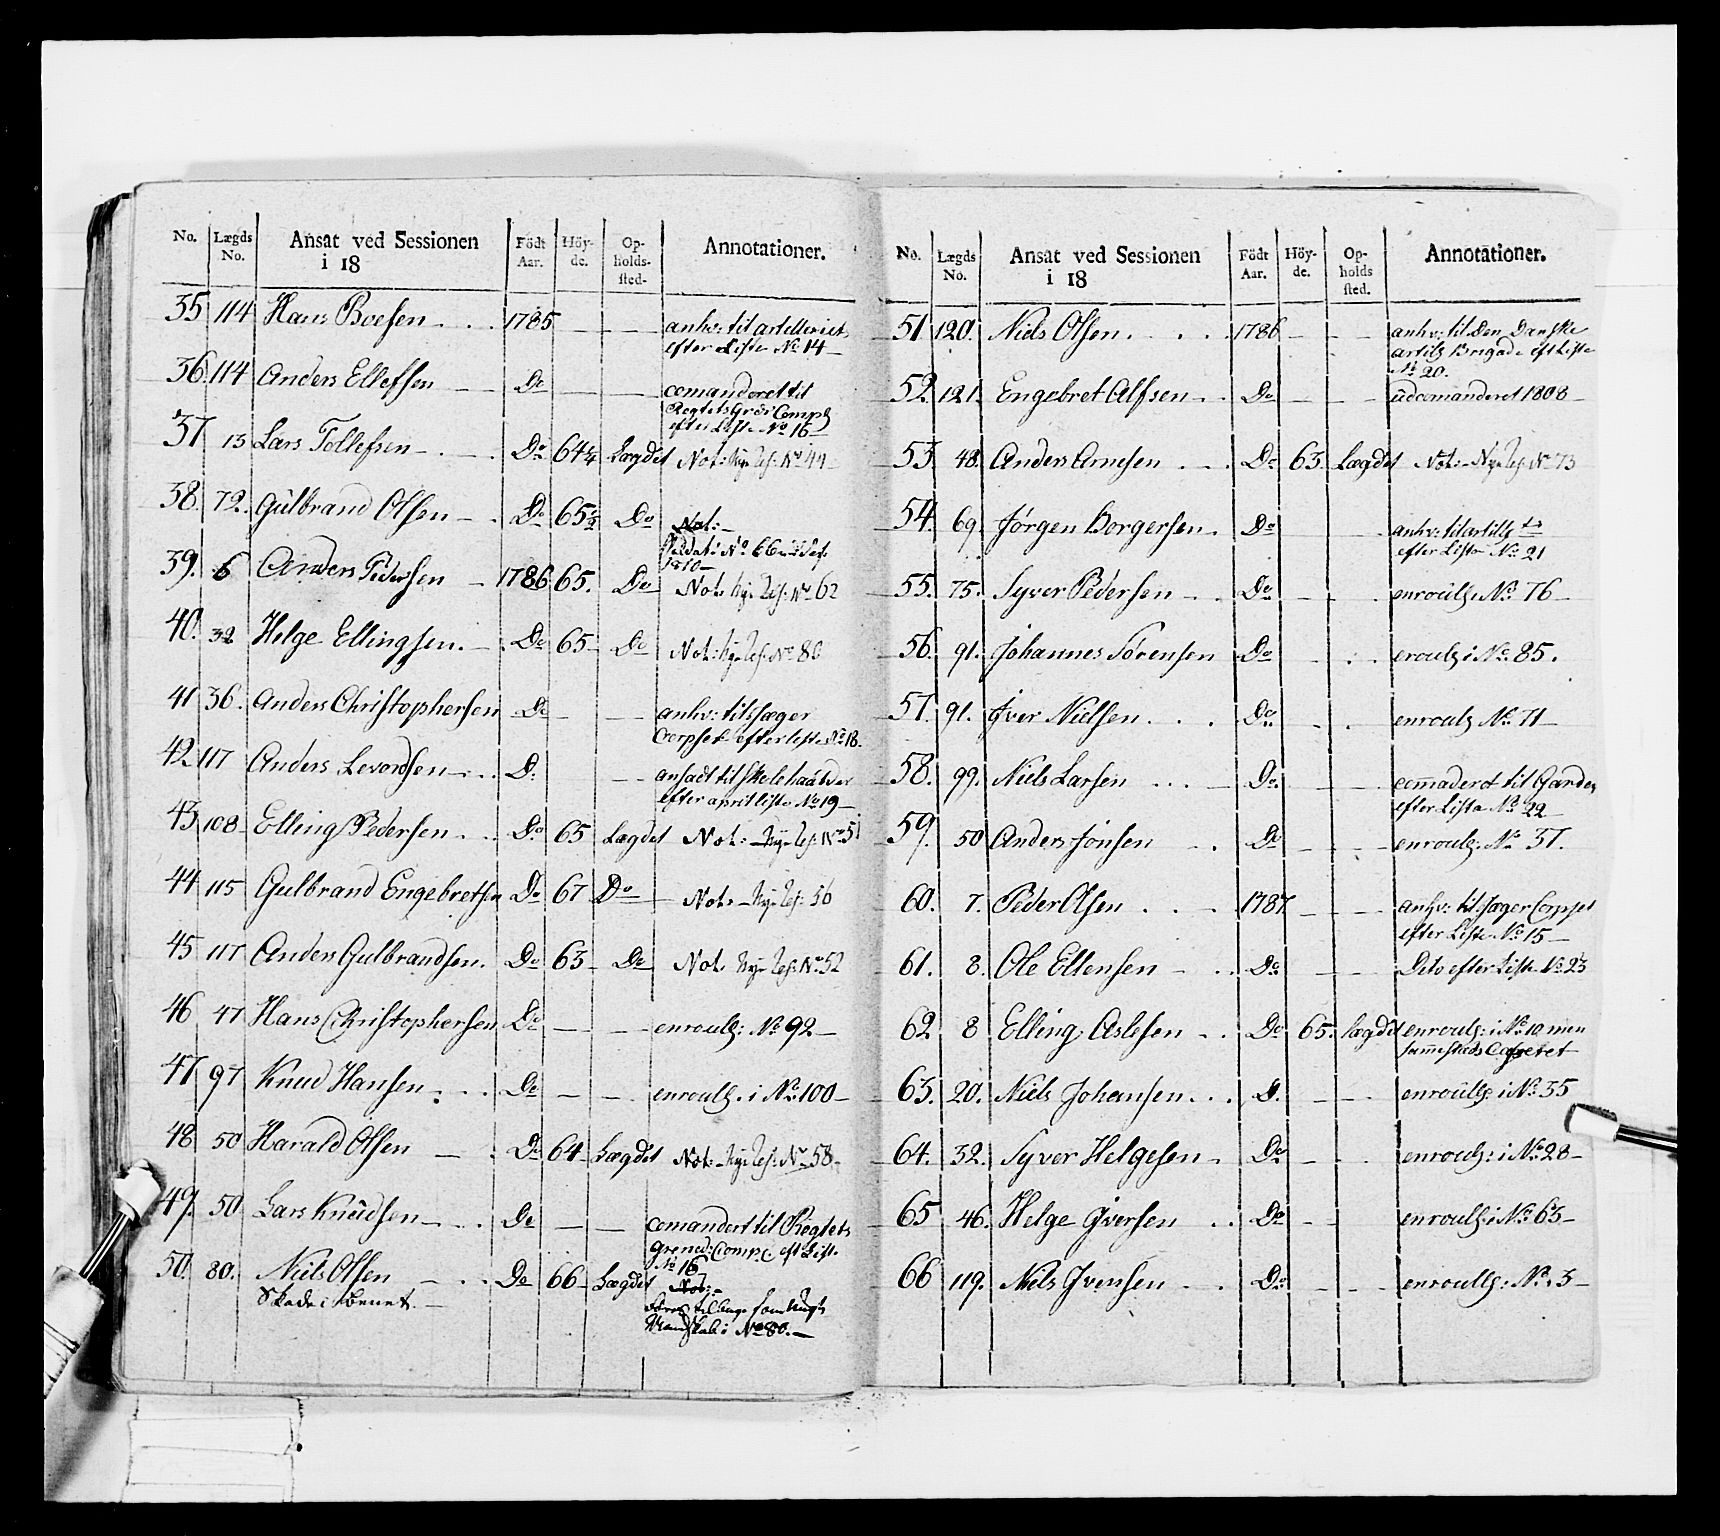 No. Lægds No. Ansat ved Sessionen i 18 Födt Aar. Höy-de. Op-holds-sted- Annotationer.
35 114 Hans Boesen 1785 — — anhv: til artilleriet
efter Liste No 14 —
36. 114 Anders Ellefsen — Do — — comanderet til
Regtets Gren: Comp
efter Liste No 16 —
37 13 Lars Tollefsen Do 64¼ Lægdet Not: No 44
38. 72. Gulbrand Olsen Do 65½ Do Not: —
No 66
1810 —
39. 6 Anders Pedersen — 1786 65. Do Not: No 62
40. 32 Helge Ellingsen. Do 65 — Do Not: No 80
41 36. Anders Christophersen Do — — anhv: til Jæger
Corpset efter liste No 18.
42 117 Anders Levordsen Do — ansadt til
efter april liste No 19 —
43 108 Elling Pedersen Do 65 Lægdet Not: No 51
44 115 Gulbrand Engebretsen Do 67 Do Not: 56
45 117 Anders Gulbrandsen. Do 63 — Do Not: No 52
46 47 Hans Christophersen Do — — enroull: No 92 —
47 97 Knud Hansen Do — — enroull. i No 100 —
48 50 Harald Olsen Do 64 — Lægdet Not: No 58 —
49. 50 Lars Knudsen Do — — comandert til Regtets
Grened: Comp. eft List.
No 16
50. 80. Niels Olsen Do 66 — Lægdet Not: —
Skade i Benet. —
No 80. —
No. Lægds No. Ansat ved Sessionen i 18 Födt Aar. Höy-de. Op-holds sted. Annotationer.
51 120. Niels Olsen 1786 — — anhv: til Den Danske
artill Brigade eft Liste
No 20.
52. 121. Engebret Alfsen Do — — udcomanderet 1808 —
53 48. Anders Arnesen Do 63. Lægdet Not: No 73
54. 69 Jørgen Borgersen. Do anhv: til artill
efter Liste No 21
55. 75. Syver Pedersen — Do — enroull. No 76 —
56. 91. Johannes Sörensen Do — eroull i No. 85.
57. 91. Iver Nielsen Do enroull No 71 —
58. 99. Niels Larsen Do com̅aderet til Garden
efter Liste No 22
59. 50 Anders Jonsen Do enroull: No 37.
60. 7. Peder Olsen 1787. — — anhv: til Jæger Corpset
efter Liste No 15 —
61. 8. Ole Ellensen — Do — — Dito efter Liste No 23
62 8 Elling Aslesen Do 65. Lægdet enroull: i No 10 men
sam̅esteds Casseret
63. 20. Niels Johansen D. — — enroull: i No 35
64. 32. Syver Helgesen Do — enroull: i No 28 —
65 46. Helge Iversen Do — — enroull: i No 63 —
66 119. Niels Ivensen Do — — enroull: No 3 —